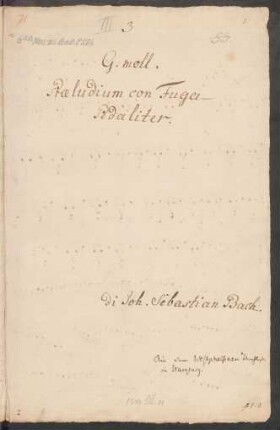 III 3
G. moll.
Præludium con Fuga
Pedaliter.
di Joh. Sebastian Bach.
Aus dem
in